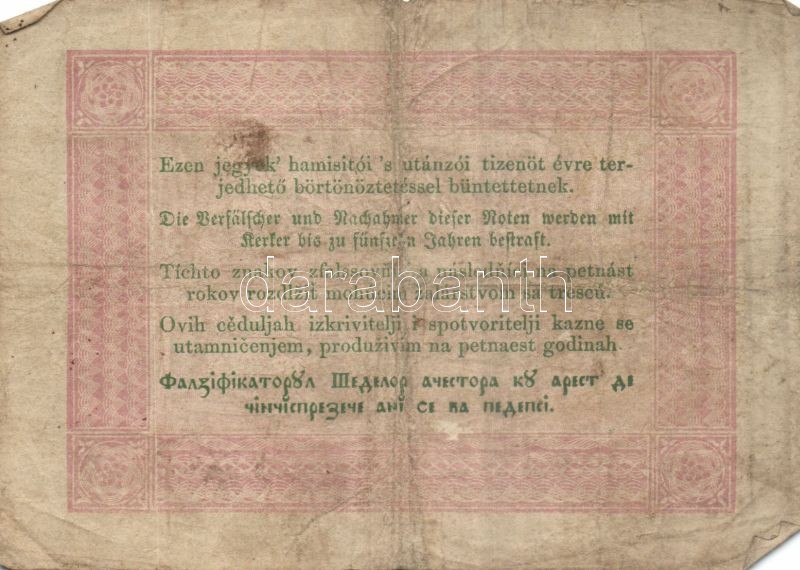 Ezen jegyek' hamisitói 's utánzói tizenöt évre ter-
jedhető börtönöztetéssel büntettetnek.
Die Verfälscher und Nachahmer dieser Noten werden mit
Kerker bis zu fünfzehn Jahren bestraft.
Tíchto znakov a následňíci na petnást
rokov rozdlžit sa trescú.
darabanth
Ovih cĕduljah izkrivitelji i spotvoritelji kazne se
utamničenjem, produživim na petnaest godinah
Фалȥіфікаторꙋл Шеделор ачестора кꙋ арест де
чінчіспреȥече анї се ва педепсі.